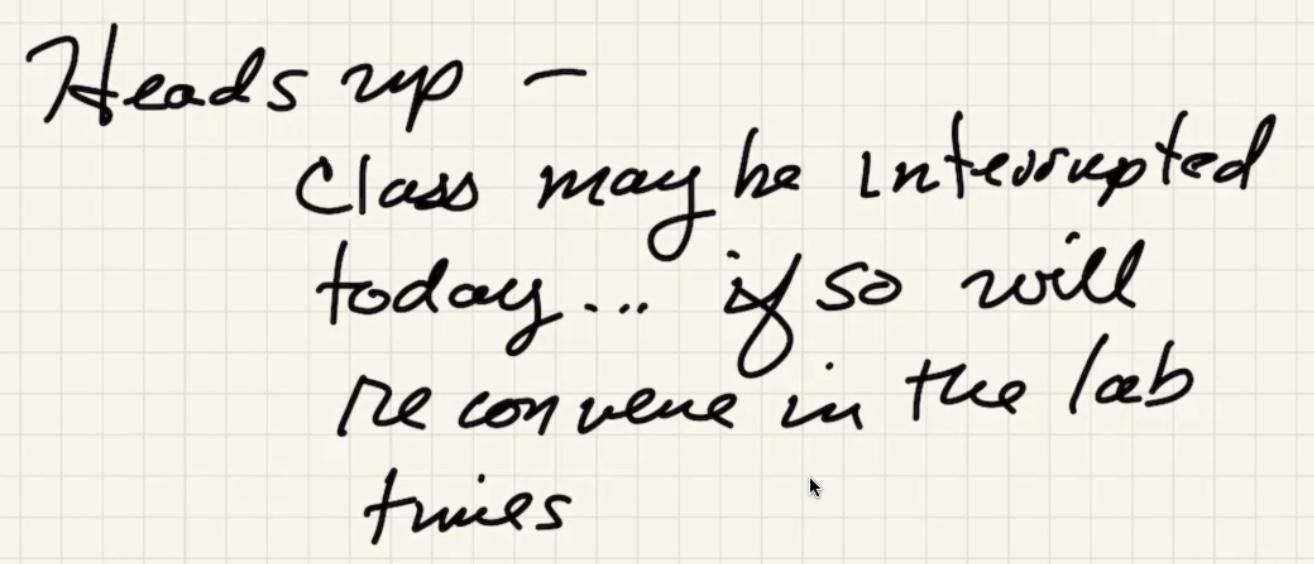 Heads up -
Class may be interrupted
today... if so will
reconvene in the lab
times